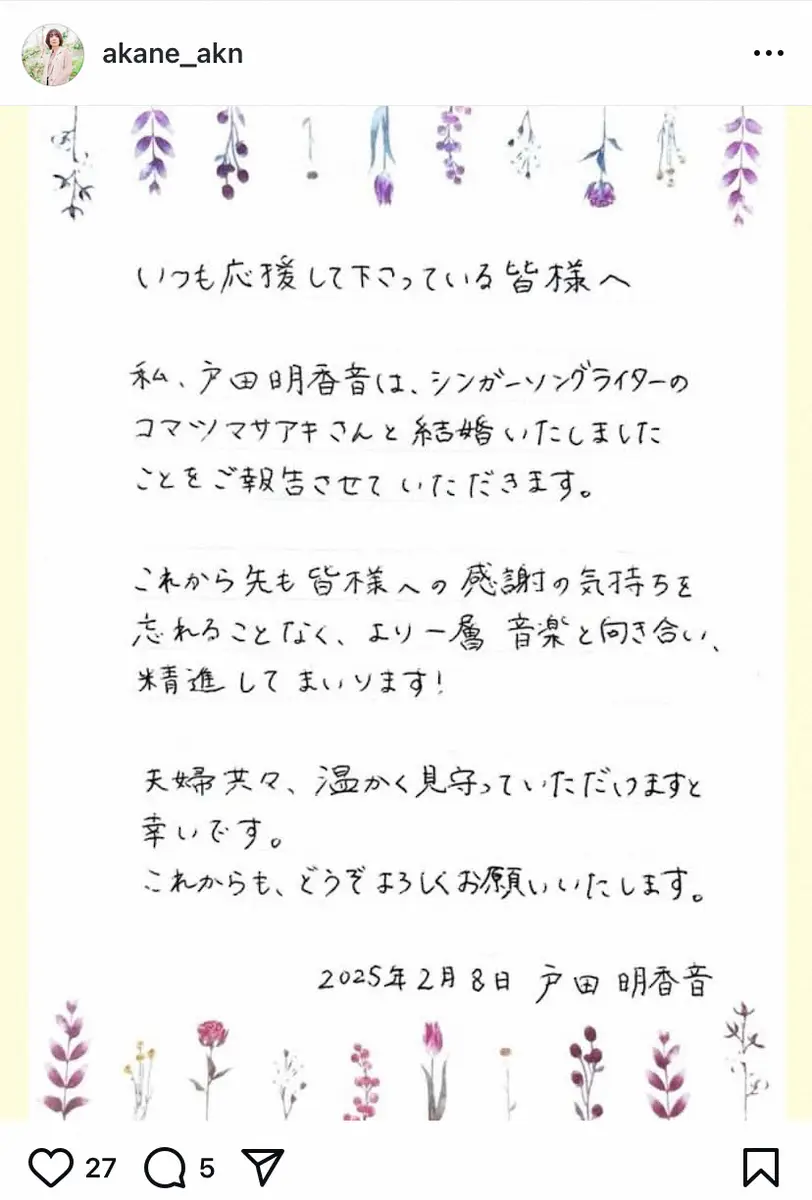 akane_akn
いつも応援して下さっている皆様へ
私、戸田明香音は、シンガーソングライターの
コマツマサアキさんと結婚いたしました
ことをご報告させていただきます。
これから先も皆様への感謝の気持ちを
忘れることなく、より一層 音楽と向き合い、
精進してまいります!
夫婦共々、温かく見守っていただけますと
幸いです。
これからも、どうぞよろしくお願いいたします。
2025年2月8日 戸田 明香音
27 5